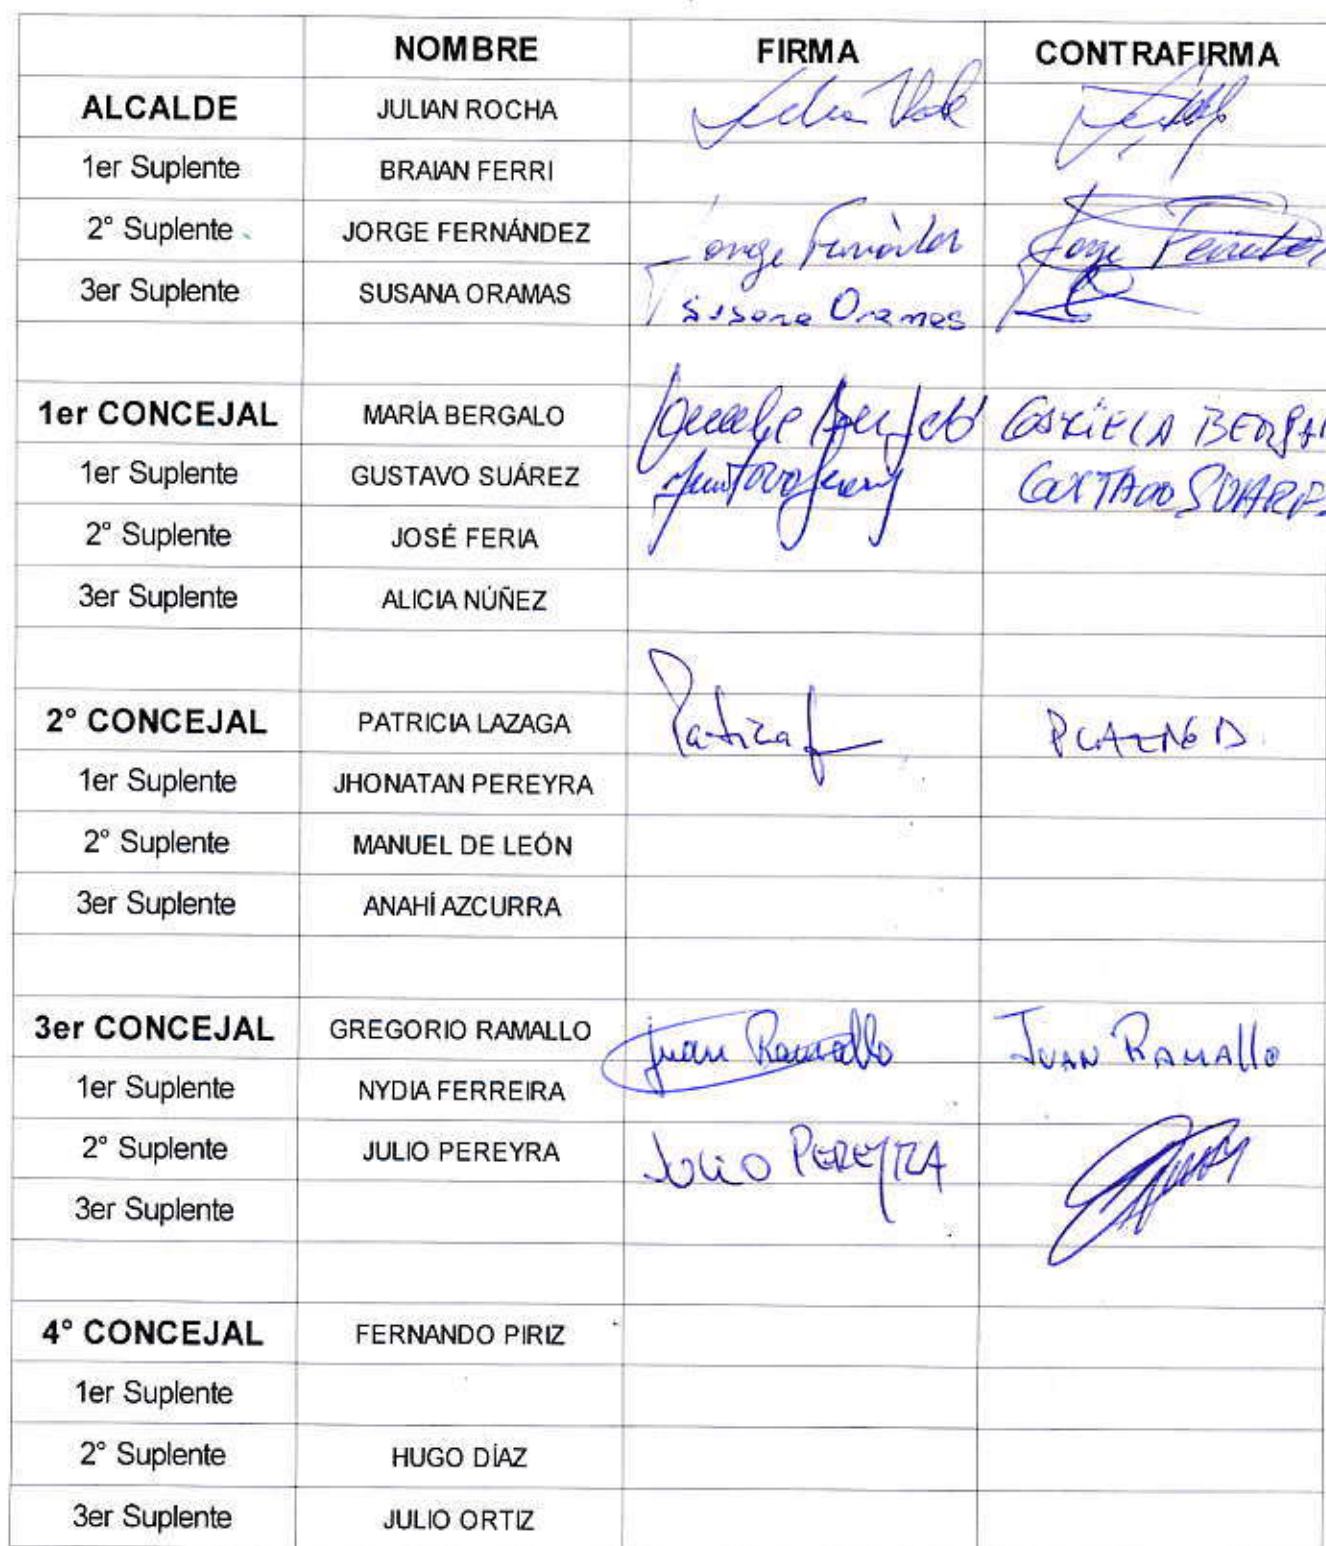 NOMBRE FIRMA CONTRAFIRMA
ALCALDE JULIAN ROCHA
1er Suplente BRAIAN FERRI
2° Suplente JORGE FERNÁNDEZ Jorge Fernández Jorge Fernández
3er Suplente SUSANA ORAMAS Susana Oramas
1er CONCEJAL MARÍA BERGALO
1er Suplente GUSTAVO SUÁREZ
2° Suplente JOSÉ FERIA
3er Suplente ALICIA NÚÑEZ
2° CONCEJAL PATRICIA LAZAGA
1er Suplente JHONATAN PEREYRA
2° Suplente MANUEL DE LEÓN
3er Suplente ANAHÍ AZCURRA
3er CONCEJAL GREGORIO RAMALLO Juan Ramallo JUAN RAMALLO
1er Suplente NYDIA FERREIRA
2° Suplente JULIO PEREYRA JULIO PEREYRA
3er Suplente
4° CONCEJAL FERNANDO PIRIZ
1er Suplente
2° Suplente HUGO DÍAZ
3er Suplente JULIO ORTIZ